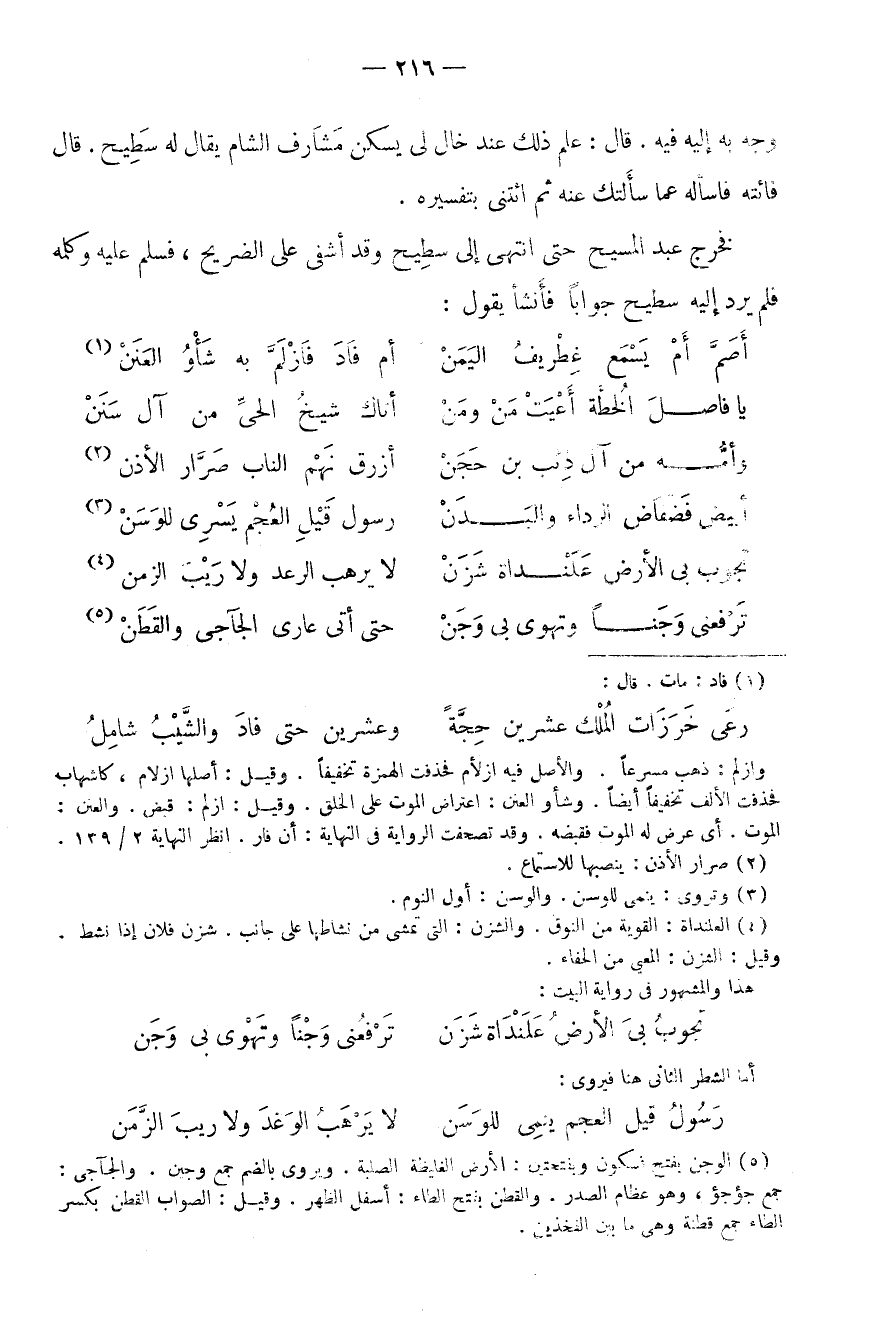 — ٢١٦ —
وجه به إليه فيه . قال : علم ذلك عند خال لى يسكن مَشَارف الشام يقال له سَطِيح . قال
فائته فاسأله عما سأَلتك عنه ثم ائتنى بتفسيره .
فخرج عبد المسيح حتى انتهى إلى سطِيح وقد أشفى على الضريح ، فسلم عليه وكلمه
فلم يرد إليه سطيح جواباً فأَنشأ يقول :
أَصَمَّ أَمْ يَسْمَع غِطْريفُ اليَمَنْ أم فَادَ فَازْلَمَّ به شَأْوُ العَنَنْ (١)
يا فاصلَ الخُطَّة أَعْيَتْ مَنْ ومَنْ أتاك شيخُ الحىِّ من آل سَنَنْ
وأمُّه من آل ذِئب بن حَجَنْ أزرق نَهْم الناب صَرَّار الأذن (٢)
أبيض فَضفَاض الرداء والبَدَنْ رسول قَيْلِ العُجْم يَسْرِى للوَسَنْ (٣)
تجوب بى الأرض عَلَنْداة شَزَنْ لا يرهب الرعد ولا رَيْبَ الزمن (٤)
تَرْفعنى وَجَناً وتهوى بى وَجَنْ حتى أتى عارى الجآجى والقَطَنْ (٥)
(١) فاد : مات . قال :
رعَى خَرَزَات المُلْك عشرين حِجَّةً وعشرين حتى فادَ والشَّيْبُ شامِلُ
وازلم : ذهب مسرعاً . والأصل فيه ازلأم فحذفت الهمزة تخفيفاً . وقيل : أصلها ازلام ، كاشهاب
فحذفت الألف تخفيفاً أيضاً . وشأو العنن : اعتراض الموت على الخلق . وقيل : ازلم : قبض . والعنن :
الموت . أى عرض له الموت فقبضه . وقد تصحفت الرواية فى النهاية : أن فار . انظر النهاية ٢ / ١٣٩ .
(٢) صرار الأذن : ينصبها للاستماع .
(٣) وتروى : ينمى للوسن . والوسن : أول النوم .
(٤) العلنداة : القوية من النوق . والشزن : التى تمشى من نشاطها على جانب . شزن فلان إذا نشط .
وقيل : الشزن : المعي من الحفاء .
هذا والمشهور فى رواية البيت :
تجوبُ بىَ الأرضُ عَلَنْدَاة شَزَن تَرْفعُنى وَجْناً وتَهْوَى بى وَجَن
أما الشطر الثانى هنا فيروى :
رَسُولُ قَيل العجم ينمِى للوَسَن لا يَرْهَبُ الوَعْدَ ولا ريبَ الزَّمَن
(٥) الوجن بفتح فسكون وبفتحتين : الأرض الغليظة الصلبة . ويروى بالضم جمع وجين . والجآجى :
جمع جؤجؤ ، وهو عظام الصدر . والقطن بفتح الطاء : أسفل الظهر . وقيل : الصواب القطن بكسر
الطاء جمع قطنة وهى ما بين الفخذين .